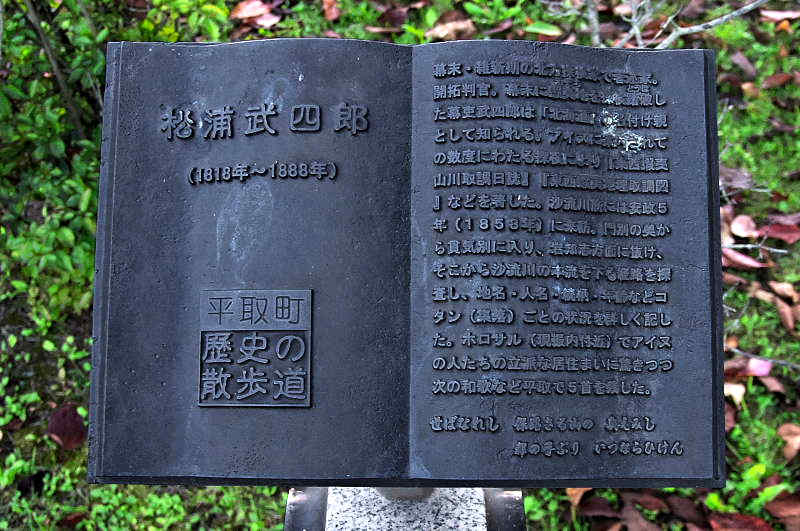 松浦武四郎
(1818年～1888年)
平取町
歴史の
散歩道
幕末・維新期の北方
開拓判官。幕末に
た幕吏武四郎は『北海道』 付け親
として知られる。アイヌに れて
の数度にわたる探検により『東西蝦夷
山川取調日誌』『東西蝦夷 理取調図
』などを著した。沙流川筋には安政5
年(1858年)に来訪。門別の奥か
ら貫気別に入り、 志方面に抜け、
そこから沙流川の本流を下る経路を探
査し、地名・人名・続柄・年齢などコ
タン(集落)ごとの状況を詳しく記し
た。ホロサル(現振内付近)でアイヌ
の人たちの立派な居住まいに驚きつつ
次の和歌など平取で5首を残した。
せばなれし
いつならひけん